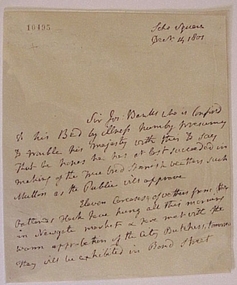 10495
Soho Square
Decr 4, 1801
Sir Jos. Banks who is confined
to his Bed by illness humbly presumes
to trouble his Majesty with this to say
That he hopes he has at last succeeded in
making of the True bred Spanish wethers such
Mutton as the Public will approve
Eleven Carcases of wethers from the
Flock have hung all this morning
in Newgate market & have met with the
warm approbation of the City Butchers, Tomorrow
They will be exhibited in Bond Street